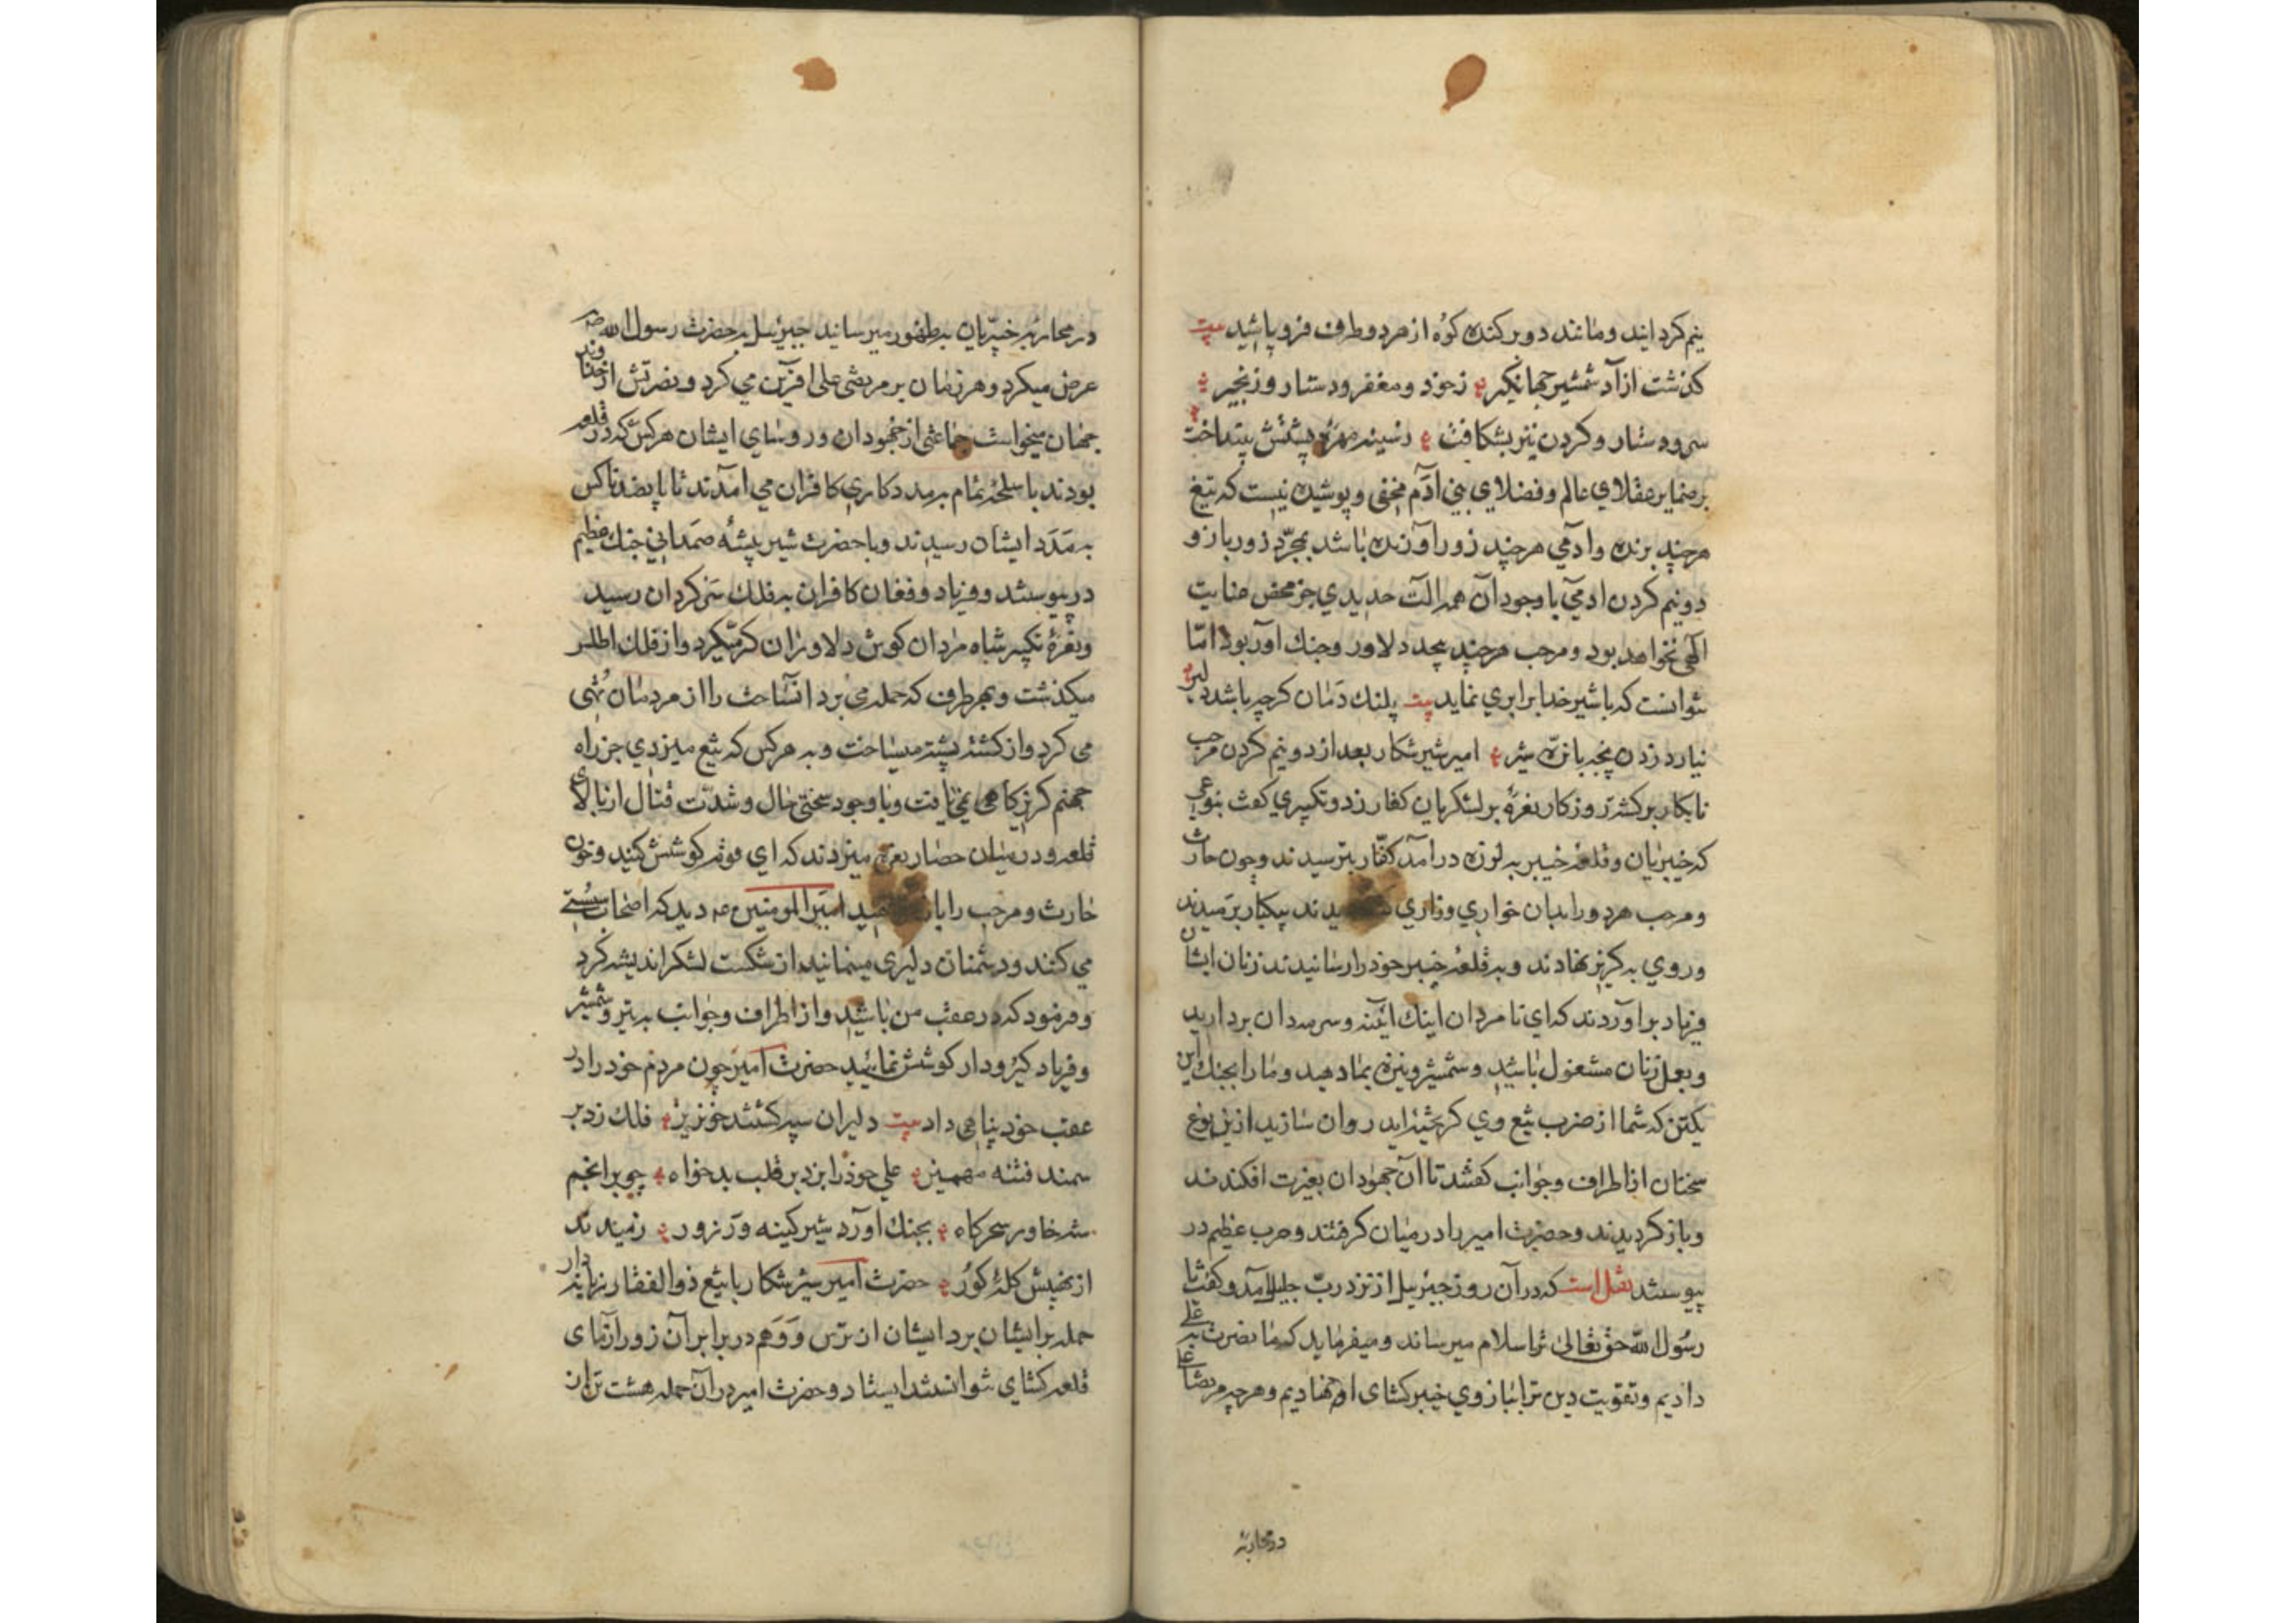 نیم کردانید و مانند دو برکنده کوه از هر دو طرف فرو پاشید بیت
کذشت از آد شمشیر جهانکیر زخود و مغفر و دستار و زنجیر
سر و دستار و کردن نیز بشکافت رسینه مهره پشتش بینداخت
بر ضمایر عقلای عالم و فضلای بنی آدم مخفی و پوشیده نیست که تیغ
هر چند برنده و آدمی هر چند زور آورنده باشد بمجرّد زور بازو
دو نیم کردن ادمی با وجود آن همه الت حدیدی جز محض عنایت
آلهی نخواهد بود و مرحب هر چند بیحد دلاور و جنك آور بود امّا
نتوانست که با شیر خدا برابری نماید بیت پلنك دمان کرچه باشد دلیر
نیارد زدن پنجه با نرّه شیر امیر شیر شکار بعد از دو نیم کردن مرحب
نابکار برکشته روزکار نعرهٔ بر لشکریان کفار زد و تکبیری کفت بنوعی
که خیبریان و قلعهٔ خیبر به لرزه درآمد کفّار بترسیدند و چون حارث
و مرحب هر دو را بدان خواری و زاری یدند بیکبار برمیدند
و روی به کریز نهادند و به قلعهٔ خیبر خود را رسانیدند زنان ایشان
فریاد برآوردند که ای نا مردان اینك ائینه و سرمه دان بردارید
و بعمل زنان مشغول باشید و شمشیر و نیزه بما دهید و ما را بجنك این
یکتن که شما از ضرب تیغ وی کریخته اید روان سازید ازین نوع
سخنان از اطراف و جوانب کفتند تا آن جهودان بغیرت افکندند
و باز کردیدند و حضرت امیر را در میان کرفتند و حرب عظیم در
پیوستند نقل است که در آن روز جبرئیل از نزد ربّ جلیل آمد و کفت یا
رسول اللّه حق تعالی ترا سلام میرساند و میفرماید که ما نصرت به علی
دادیم و تقویت دین ترا ببازوی خیبر کشای او نهادیم و هر چه مرتضا علی
در محاربه
در محاربه خیبریان به ظهور میرساند جبرئیل به حضرت رسول الله ص
عرض میکرد و هر زمان بر مرتضی علی افرین می کرد و نصرتش از خداوند
جهان میخواست جماعتی از جهودان و روسای ایشان هر کس که در قلعه
بودند با سلحهٔ تمام به مدد کاری کافران می امدند تا پانصد ناکس
به مدد ایشان رسیدند و با حضرت شیر بیشهٔ صمدانی جنك عظیم
در پیوستند و فریاد و فغان کافران به فلك سرکردان رسید
و نعرهٔ تکبیر شاه مردان کوش دلاوران کر میکرد و از فلك اطلس
میکذشت و بهر طرف که حمله می برد انساحت را از مردمان تهی
می کرد و از کشته پشته میساخت و به هر کس که تیغ میزدی جز راه
جهنم کریزکاهی نمی یافت و با وجود سختی حال و شدّت قتال از بالای
قلعه و در میان حصار نعره میزدند که ای قوم کوشش کنید و خون
حارث و مرحب را امیر المومنین ع دید که اصحاب سستی
می کنند و دشمنان دلیری مینمانید از شکست لشکر اندیشه کرد
و فرمود که در عقب من باشید و از اطراف و جوانب به تیر و شمشیر
و فریاد کیر و دار کوشش نمائید حضرت امیر چون مردم خود را در
عقب خود پناهی داد بیت دلیران سپه کشتند خونریز فلك زد بر
سمند فتنه مهمیز علی خود را بزد بر قلب بدخواه چو بر انجم
شه خاور سحرکاه بجنك آورد شیر کینه ور زور رمیدند
از نهیبش کلهٔ کور حضرت امیر شیر شکار با تیغ ذوالفقار
حمله بر ایشان برد ایشان از ترس و وهم در برابر آن زور آزمای
قلعه کشای نتوانستند ایستاد و حضرت امیر در آن حمله هشت تن از